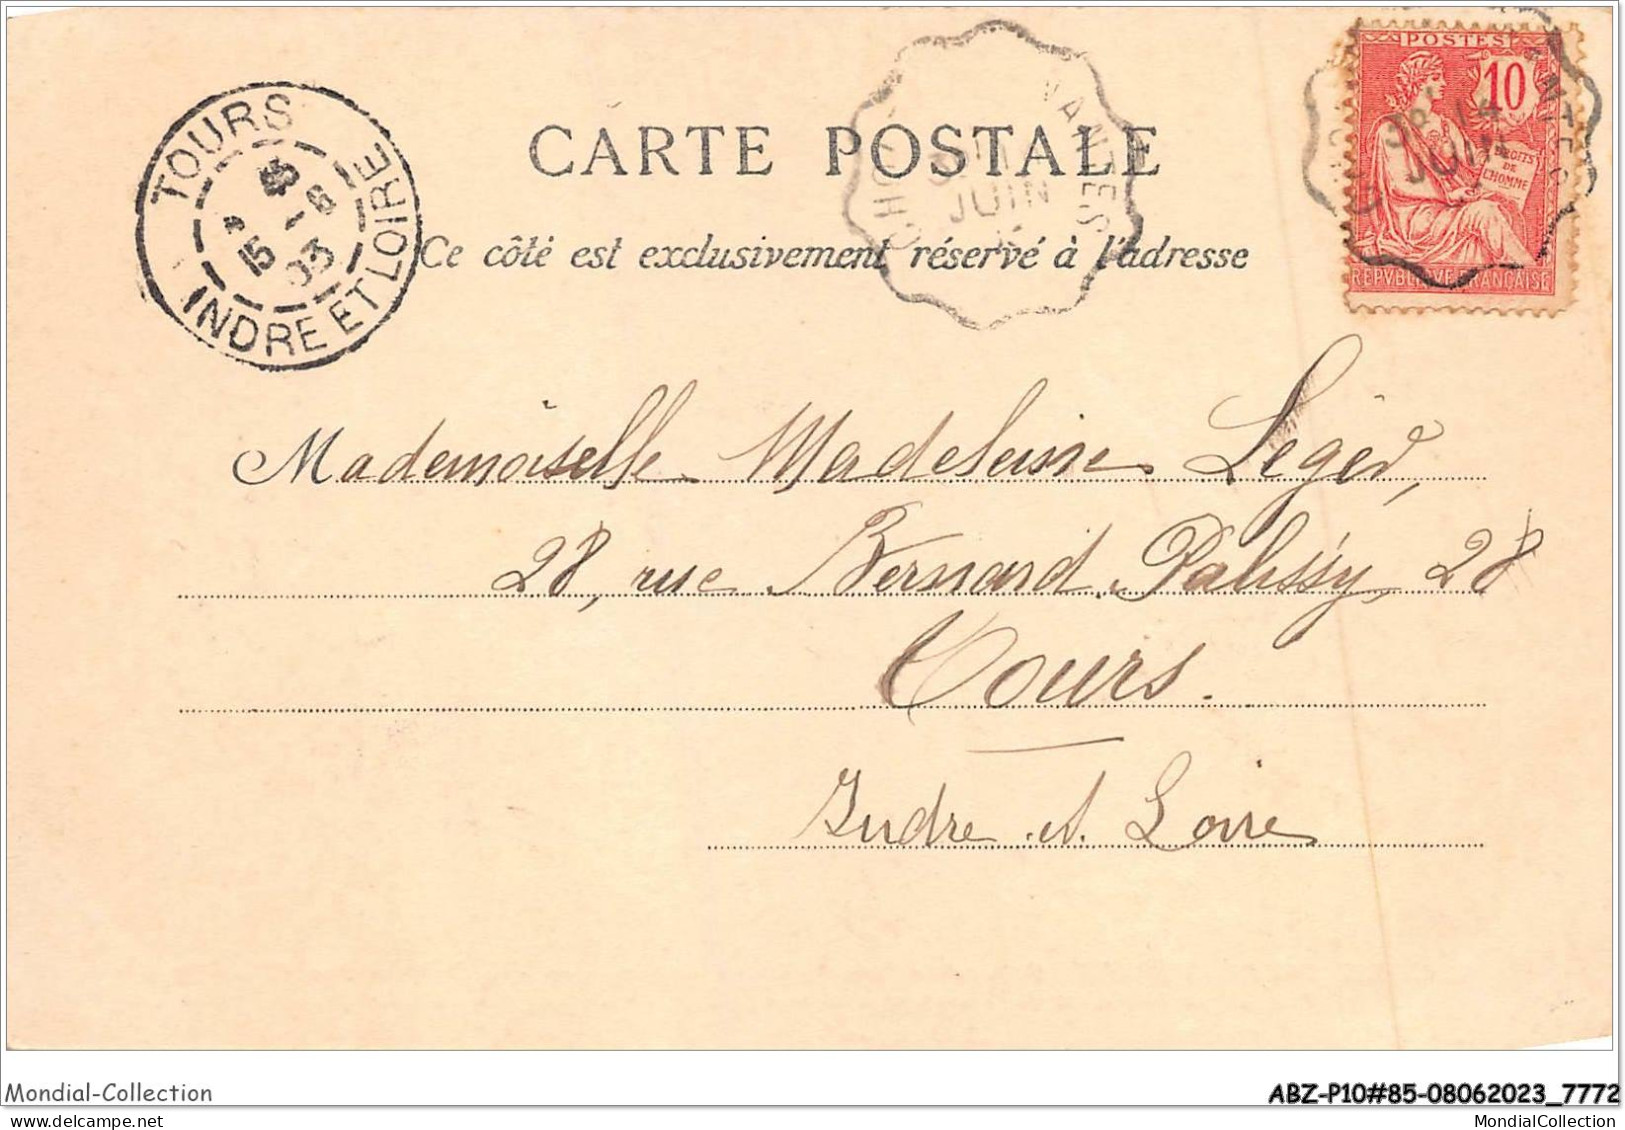 TOURS
15 -6
03
INDRE ET LOIRE
NANTES
JUIN
POSTES
10
JUIN
DROITS
DE
L'HOMME
REPVBLIQVE FRANÇAISE
CARTE POSTALE
Ce côté est exclusivement réservé à l'adresse
Mademoiselle Madeleine Léger,
28, rue Bernard Palissy, 28
Tours.
Indre et Loire
Mondial-Collection
ABZ-P10#85-08062023_7772
MondialCollection
MondialCollection